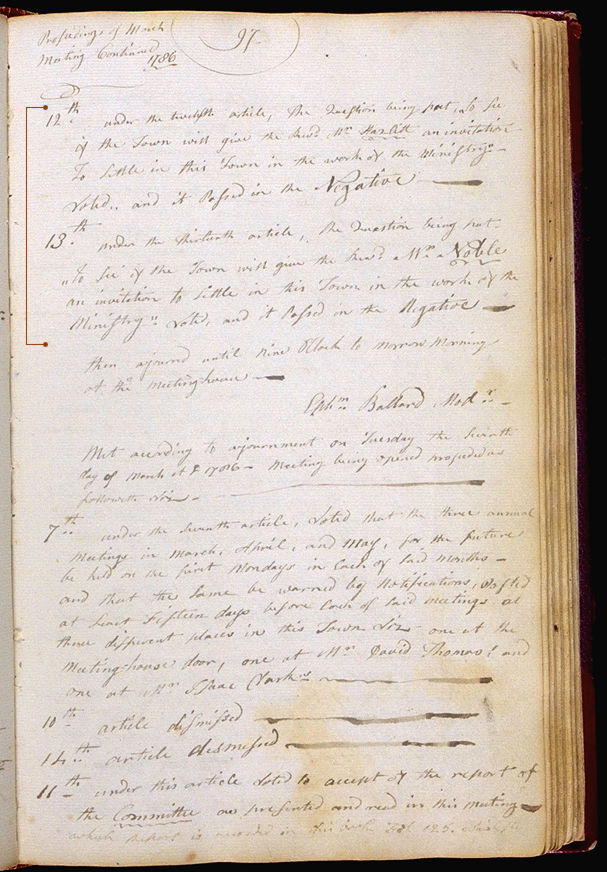 Proseedings of March
Meeting Continued
1786
97
12th under the twelfth article, the Question being put, To See
if the Town will give the Revd Mr Hazlitt an invitation
To Settle in this Town in the work of the Ministry"
Voted,, and it Passed in the Negative
13th under the thirteenth article, the Question being put
"To See if the Town will give the Revd Mr Noble
an invitation to Settle in this Town in the work of the
Ministry" Voted, and it Passed in the Negative
then ajourned until nine Oclock to morrow morning
at the meetinghouse
Ephm Ballard Modr
Met according to ajournment on Tuesday the Seventh
day of March 1786 Meeting being opened proseded as
followeth Viz
7th under the Seventh article, Voted that the three annual
Meetings in March, April, and May, for the future
be held on the first Mondays in Each of Said Months
and that the Same be warned by Notifications, Posted
at least Fifteen days before Each of Said Meetings at
three different places in this Town Viz one at the
Meetinghouse door, one at Mr David Thomas's and
one at Mr Isaac Clarks
10th article dismissed
14th article dismissed
11th under this article Voted to accept of the report of
the Committee as presented and read in this meeting
which report is recorded in this book Fol 125.